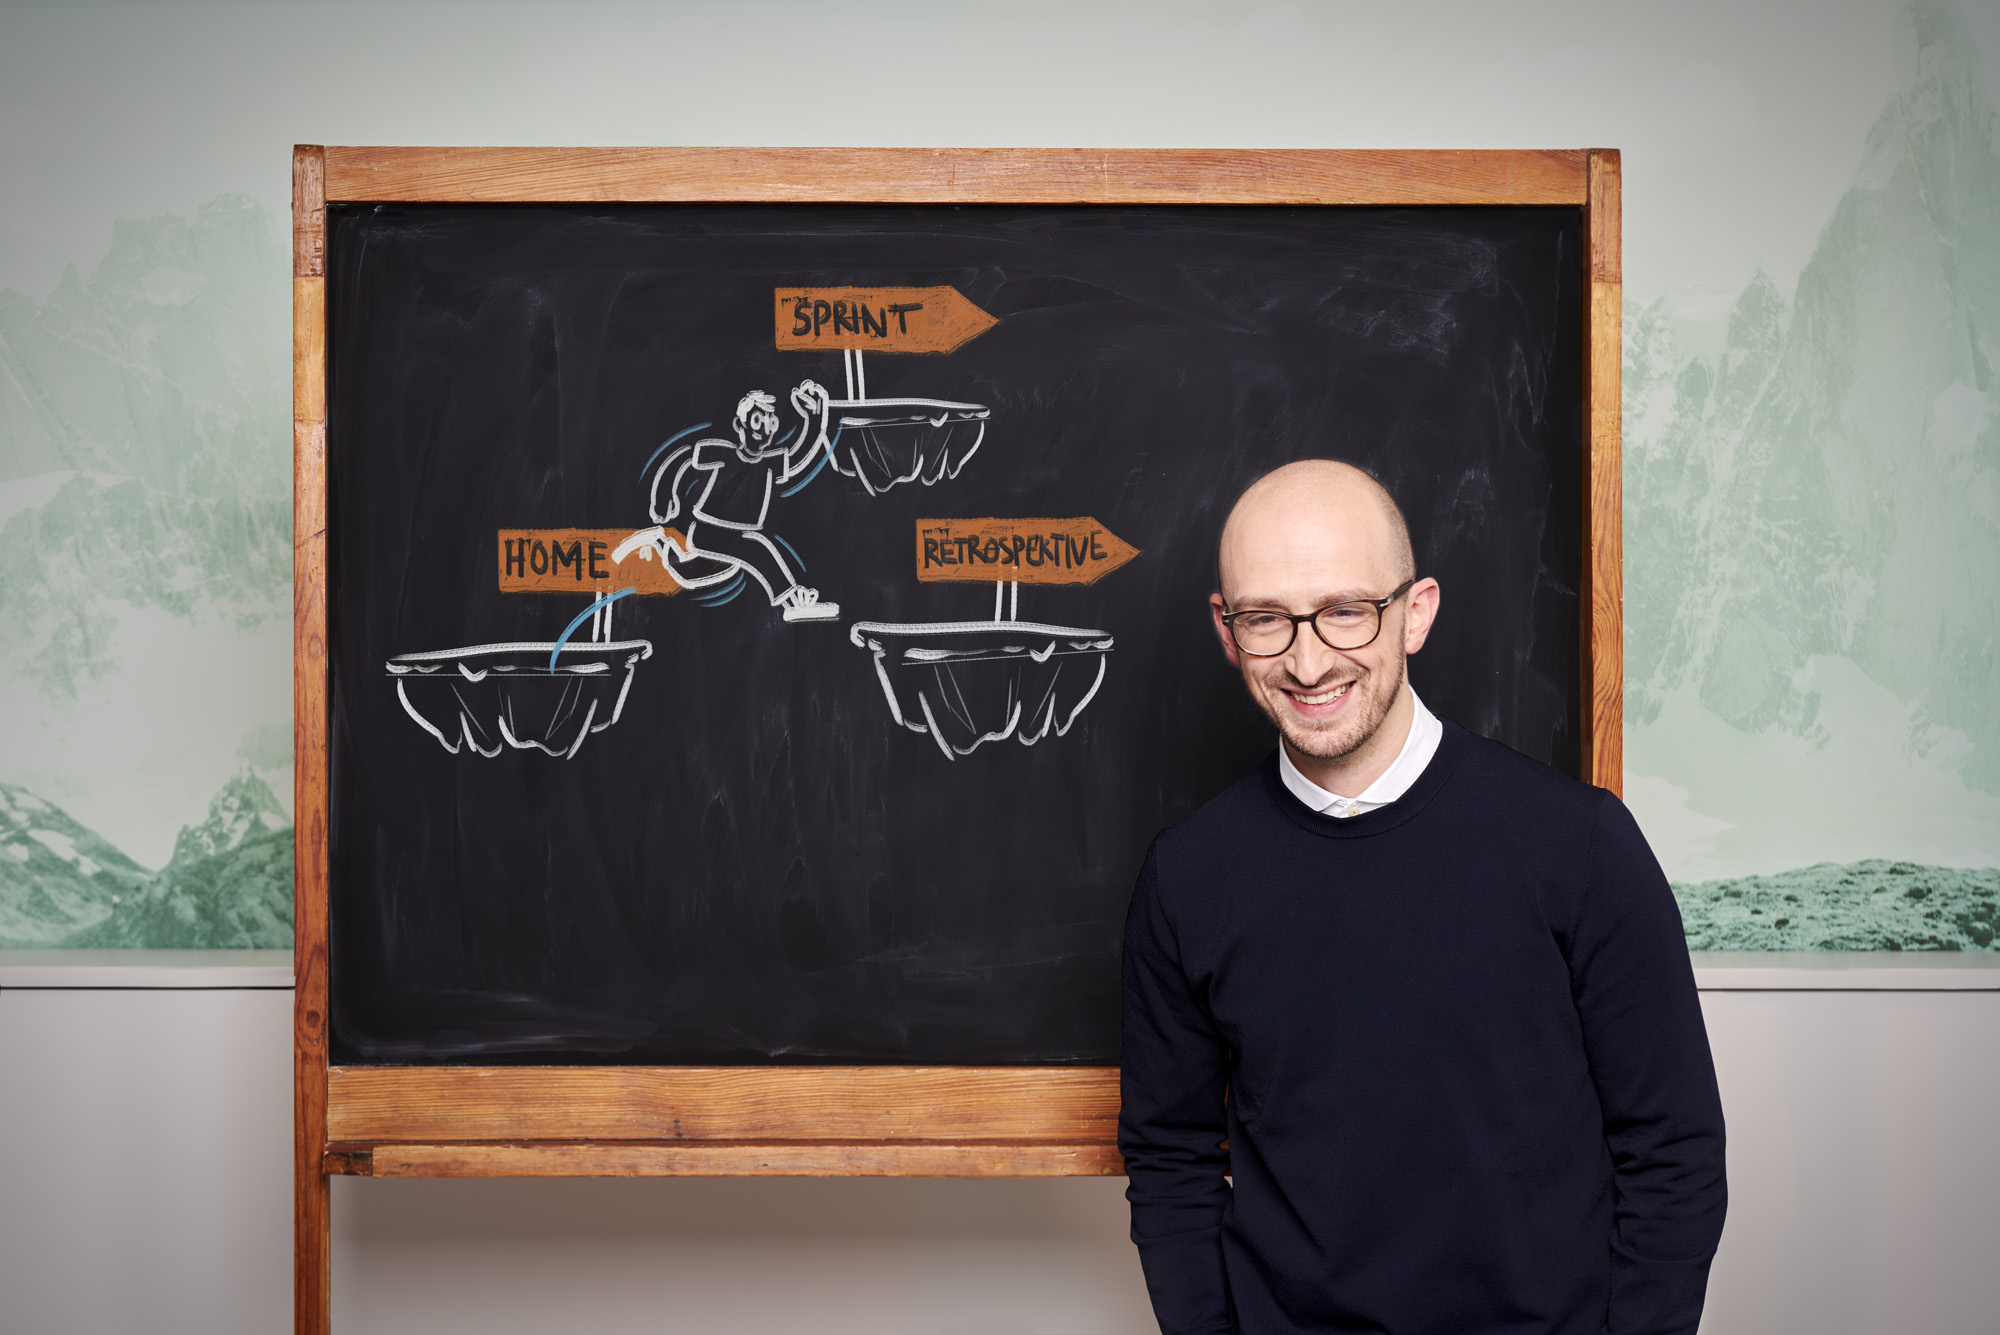 SPRINT
HOME
RETROSPEKTIVE